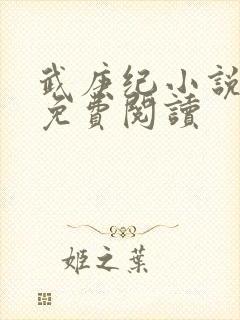 武庚纪小说
免費閱讀
姬之葉